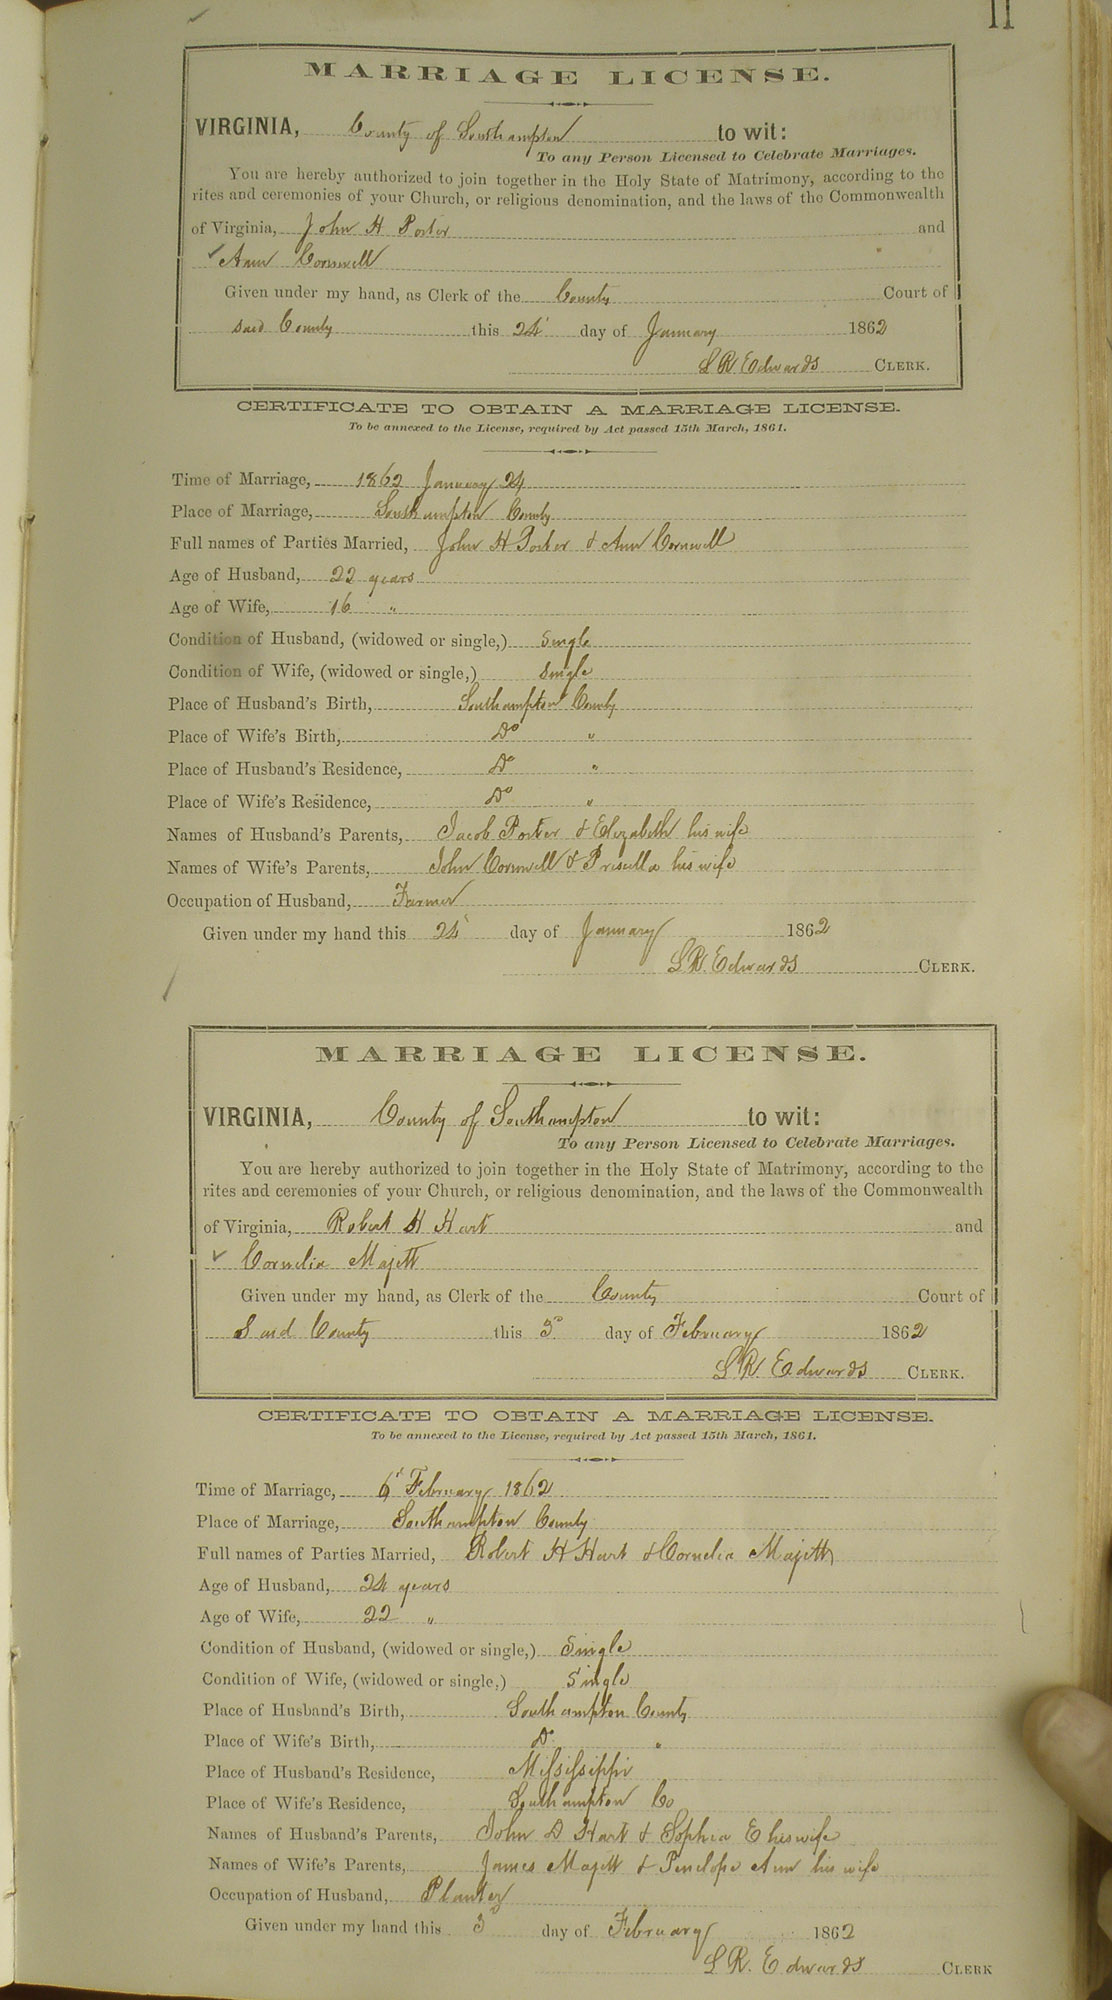 11
MARRIAGE LICENSE.
VIRGINIA, County of Southampton to wit:
To any Person Licensed to Celebrate Marriages.
You are hereby authorized to join together in the Holy State of Matrimony, according to the
rites and ceremonies of your Church, or religious denomination, and the laws of the Commonwealth
of Virginia, John H Porter and
Ann Cornwell
Given under my hand, as Clerk of the County Court of
said County this 24 day of January 1862
L R Edwards CLERK.
CERTIFICATE TO OBTAIN A MARRIAGE LICENSE.
To be annexed to the License, required by Act passed 15th March, 1861.
Time of Marriage, 1862 January 24
Place of Marriage, Southampton County
Full names of Parties Married, John H Porter & Ann Cornwell
Age of Husband, 22 years
Age of Wife, 16 "
Condition of Husband, (widowed or single,) Single
Condition of Wife, (widowed or single,) Single
Place of Husband's Birth, Southampton County
Place of Wife's Birth, Do "
Place of Husband's Residence, Do "
Place of Wife's Residence, Do "
Names of Husband's Parents, Jacob Porter & Elizabeth his wife
Names of Wife's Parents, John Cornwell & Priscilla his wife
Occupation of Husband, Farmer
Given under my hand this 24 day of January 1862
L R. Edwards CLERK.
MARRIAGE LICENSE.
VIRGINIA, County of Southampton to wit:
To any Person Licensed to Celebrate Marriages.
You are hereby authorized to join together in the Holy State of Matrimony, according to the
rites and ceremonies of your Church, or religious denomination, and the laws of the Commonwealth
of Virginia, Robert H Hart and
Cornelia Majett
Given under my hand, as Clerk of the County Court of
Said County this 3d day of February 1862
L R. Edwards CLERK.
CERTIFICATE TO OBTAIN A MARRIAGE LICENSE.
To be annexed to the License, required by Act passed 15th March, 1861.
Time of Marriage, 6 February 1862
Place of Marriage, Southampton County
Full names of Parties Married, Robert H Hart & Cornelia Majett
Age of Husband, 24 years
Age of Wife, 22 "
Condition of Husband, (widowed or single,) Single
Condition of Wife, (widowed or single,) Single
Place of Husband's Birth, Southampton County
Place of Wife's Birth, Do "
Place of Husband's Residence, Mississippi
Place of Wife's Residence, Southampton Co
Names of Husband's Parents, John D Hart & Sophia E his wife
Names of Wife's Parents, James Majett & Penelope Ann his wife
Occupation of Husband, Planter
Given under my hand this 3d day of February 1862
L R. Edwards CLERK